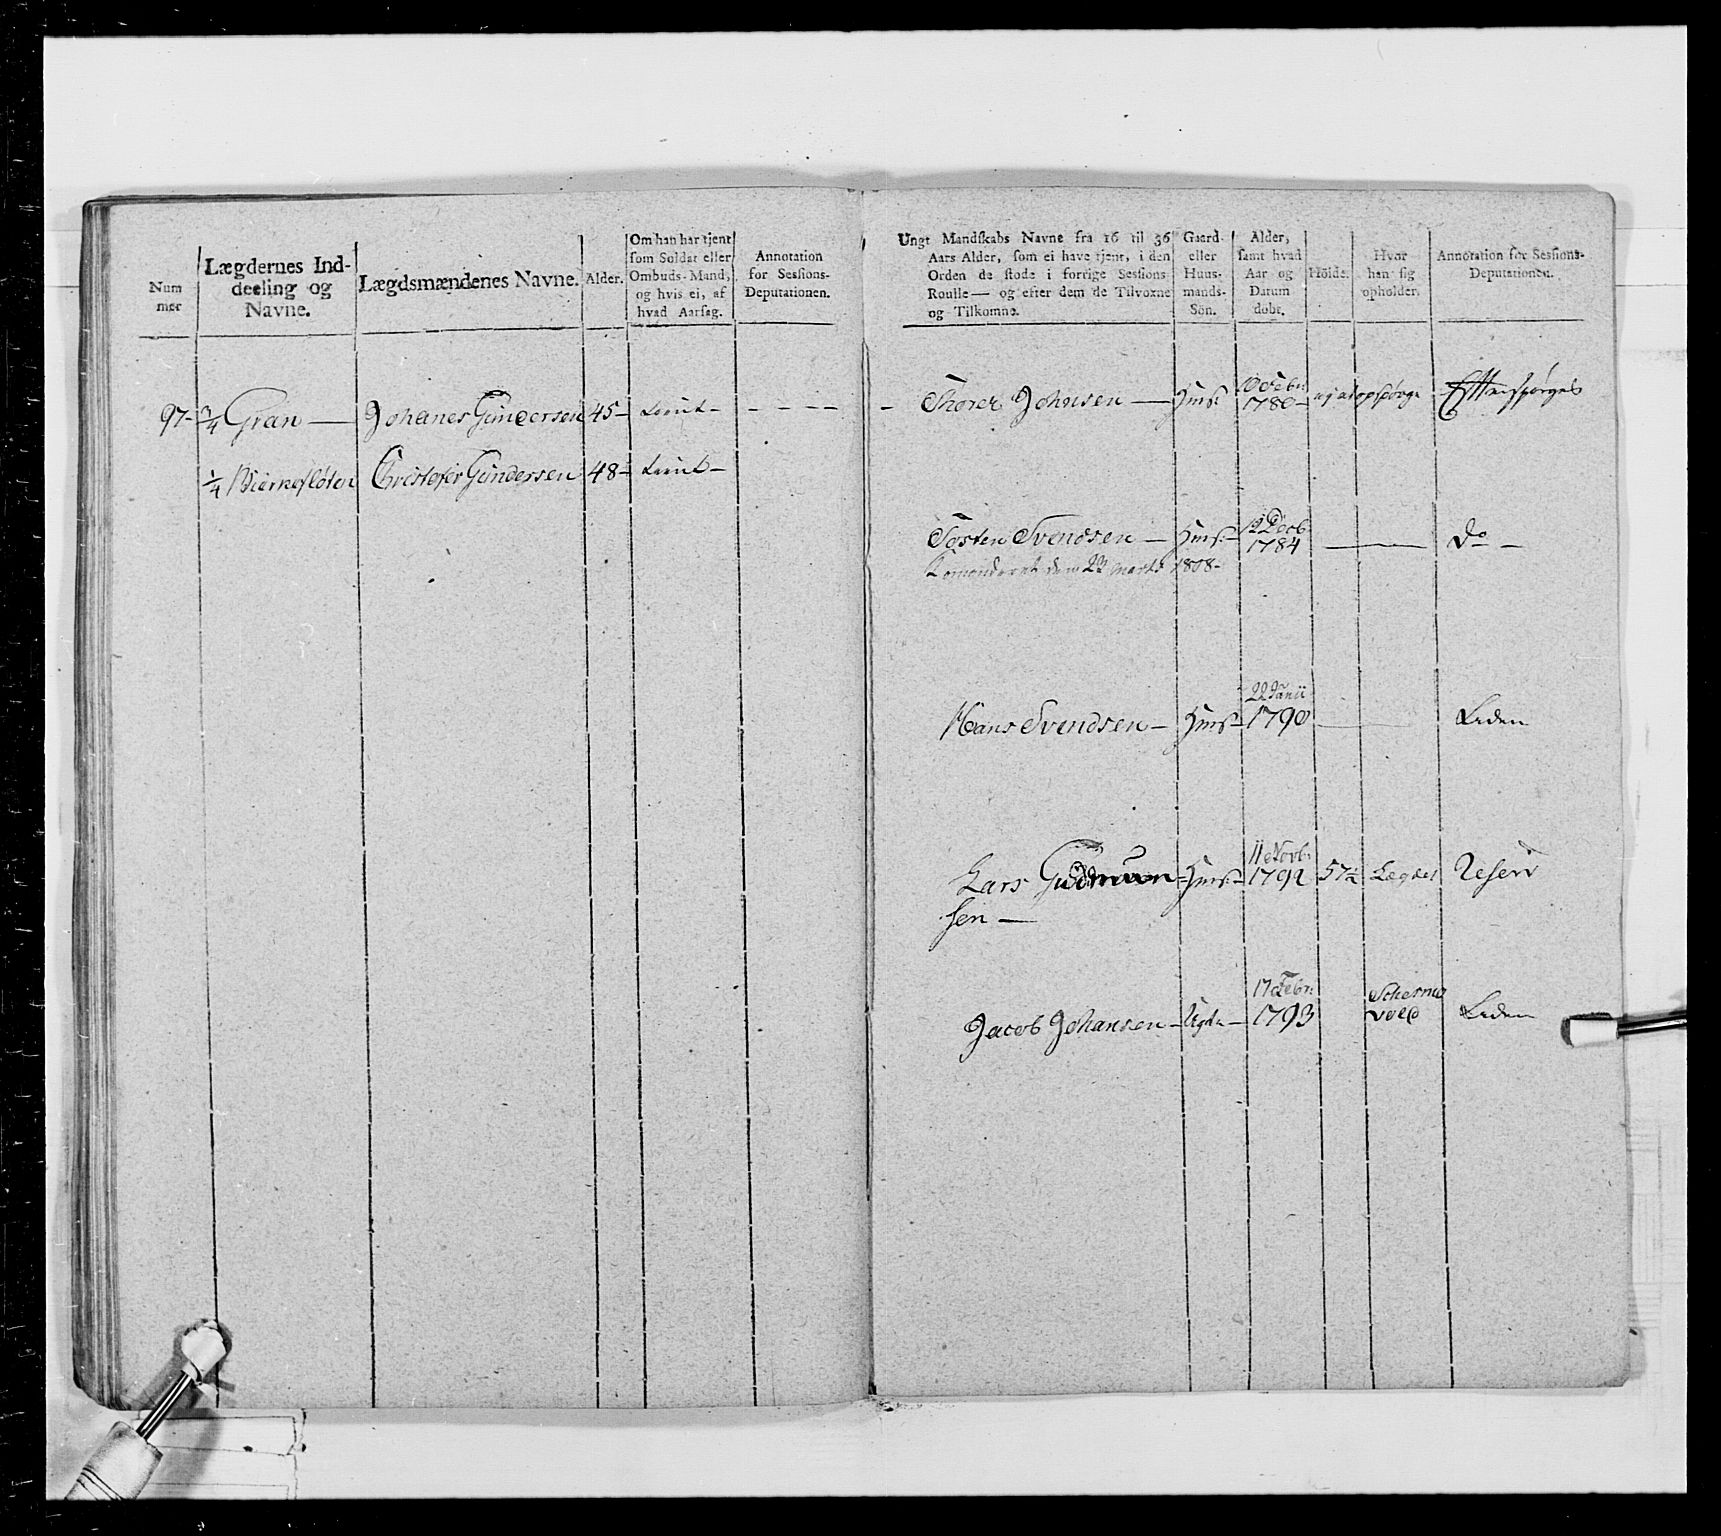 Num
mer
Lægdernes Ind-
deeling og
Navne.
Lægdsmændenes Navne.
Alder.
Om han har tjent
som Soldat eller
Ombuds-Mand,
og hvis ei, af
hvad Aarsag.
Annotation
for Sessions-
Deputationen.
97- 3/4 Gran — Johanes Gundersen 45-
1/4 Biernefløten Christofer Gundersen 48-
Ungt Mandskabs Navne fra 16 til 36
Aars Alder, som ei have tjent, i den
Orden de stode i forrige Sessions-
Roulle — og efter dem de Tilvoxne
og Tilkomne.
Gaard-
eller
Huus-
mands-
Søn.
Alder,
samt hvad
Aar og
Datum
døbt.
Höide.
Hvor
han sig
opholder.
Annotation for Sessions-
Deputationen.
Thorer Johnsen — 1780- Efterspørges
Tosten Svendsen — 1784 — Do -
Komonderet den 23 Marts 1808-
Hans Svendsen — 22 Janii
1790 — Leden
Lars Gudmun- 11 Novb:
1792 57 1/2 Lægdet Reserv
sen —
Jacob Johansen - 17 Febr:
1793 Leden